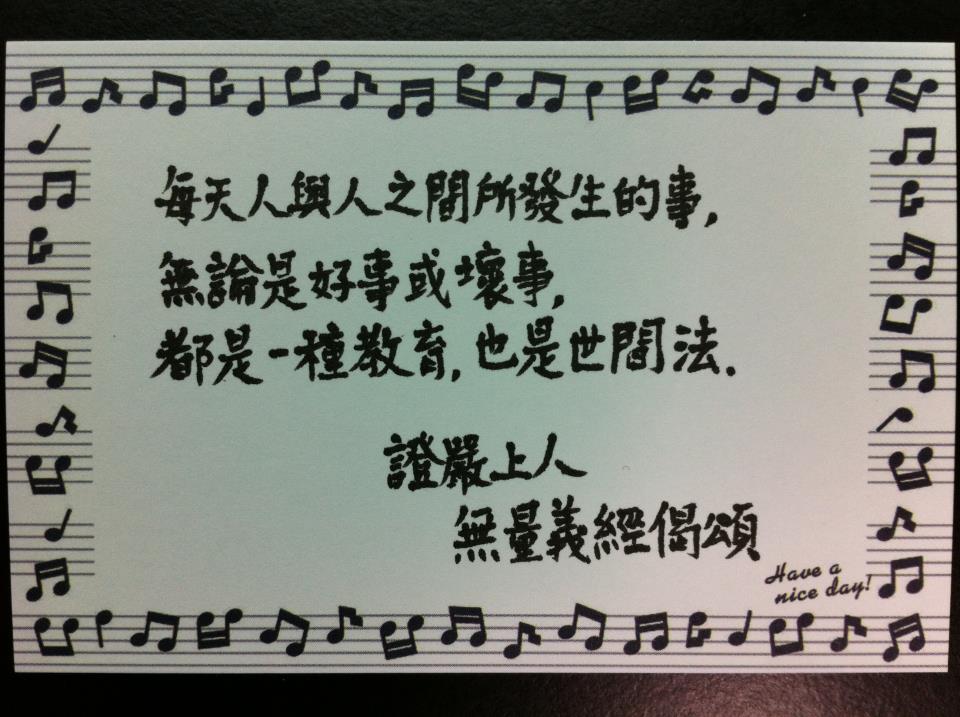 每天人與人之間所發生的事,
無論是好事或壞事,
都是一種教育,也是世間法.
證嚴上人
無量義經偈頌
Have a
nice day!